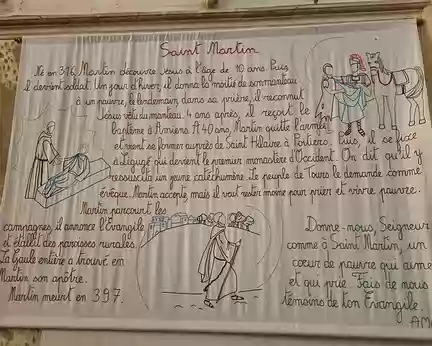 Saint Martin
Né en 316, Martin découvre Jésus à l'âge de 10 ans. Puis
il devient soldat. Un jour d'hiver, il donna la moitié de son manteau
à un pauvre, le lendemain, dans sa prière, il reconnut
Jésus vêtu du manteau. 4 ans après, il reçoit le
baptême à Amiens. A 40 ans, Martin quitte l'armée
et vient se former auprès de Saint Hilaire à Poitiers. Puis, il se fixe
à Ligugé qui devient le premier monastère d'Occident. On dit qu'il y
ressuscita un jeune catéchumène. Le peuple de Tours le demande comme
évêque. Martin accepte mais il veut rester moine pour prier et vivre pauvre.
Martin parcourt les
campagnes, il annonce l'Evangile
et établit des paroisses rurales.
La Gaule entière a trouvé en
Martin son apôtre.
Martin meurt en 397.
Donne-nous, Seigneur
comme à Saint Martin, un
coeur de pauvre qui aime
et qui prie. Fais de nous
témoins de ton Evangile.